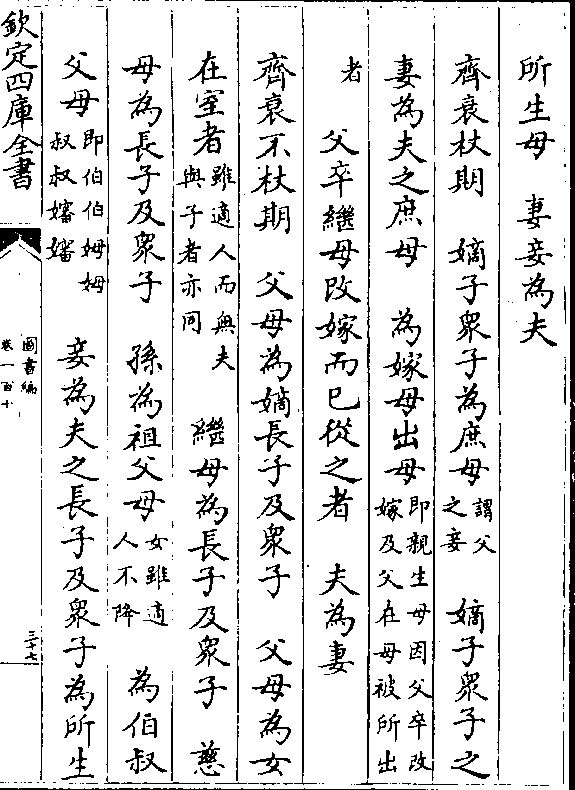 所生母　妻妾為夫
齊衰杖期　嫡子衆子為庶母謂父之妾　嫡子衆子之
妻為夫之庶母　為嫁母出母即親生母因父卒改嫁及父在母被所出
者　父卒繼母改嫁而已從之者　夫為妻
齊衰不杖期　父母為嫡長子及衆子　父母為女
在室者雖適人而無夫與子者亦同　繼母為長子及衆子　慈
母為長子及衆子　孫為祖父母女雖適人不降　為伯叔
父母即伯伯姆姆叔叔嬸嬸　妾為夫之長子及衆子為所生
欽定四庫全書
圖書編
卷一百十
三十七